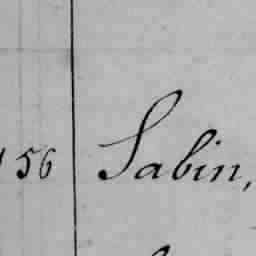 156 Sabin,